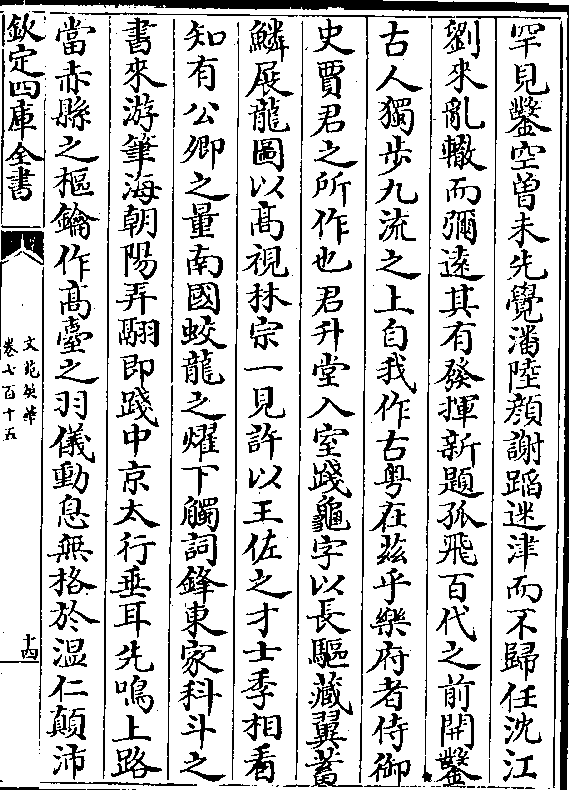 罕見鑿空曽未先覺潘陸顔謝蹈迷津而不歸任沈江
劉來亂轍而彌逺其有發揮新題孤飛百代之前開鑿
古人獨歩九流之上自我作古粤在兹乎樂府者侍御
史賈君之所作也君升堂入室踐龜字以長驅藏翼蓄
鱗展龍圖以髙視林宗一見許以王佐之才士季相看
知有公卿之量南國蛟龍之燿下觸詞鋒東家科斗之
書來游筆海朝陽弄翮即踐中京太行垂耳先鳴上路
當赤縣之樞鑰作髙臺之羽儀動息無格於温仁顛沛
欽定四庫全書
文苑英華
卷七百十五
十四